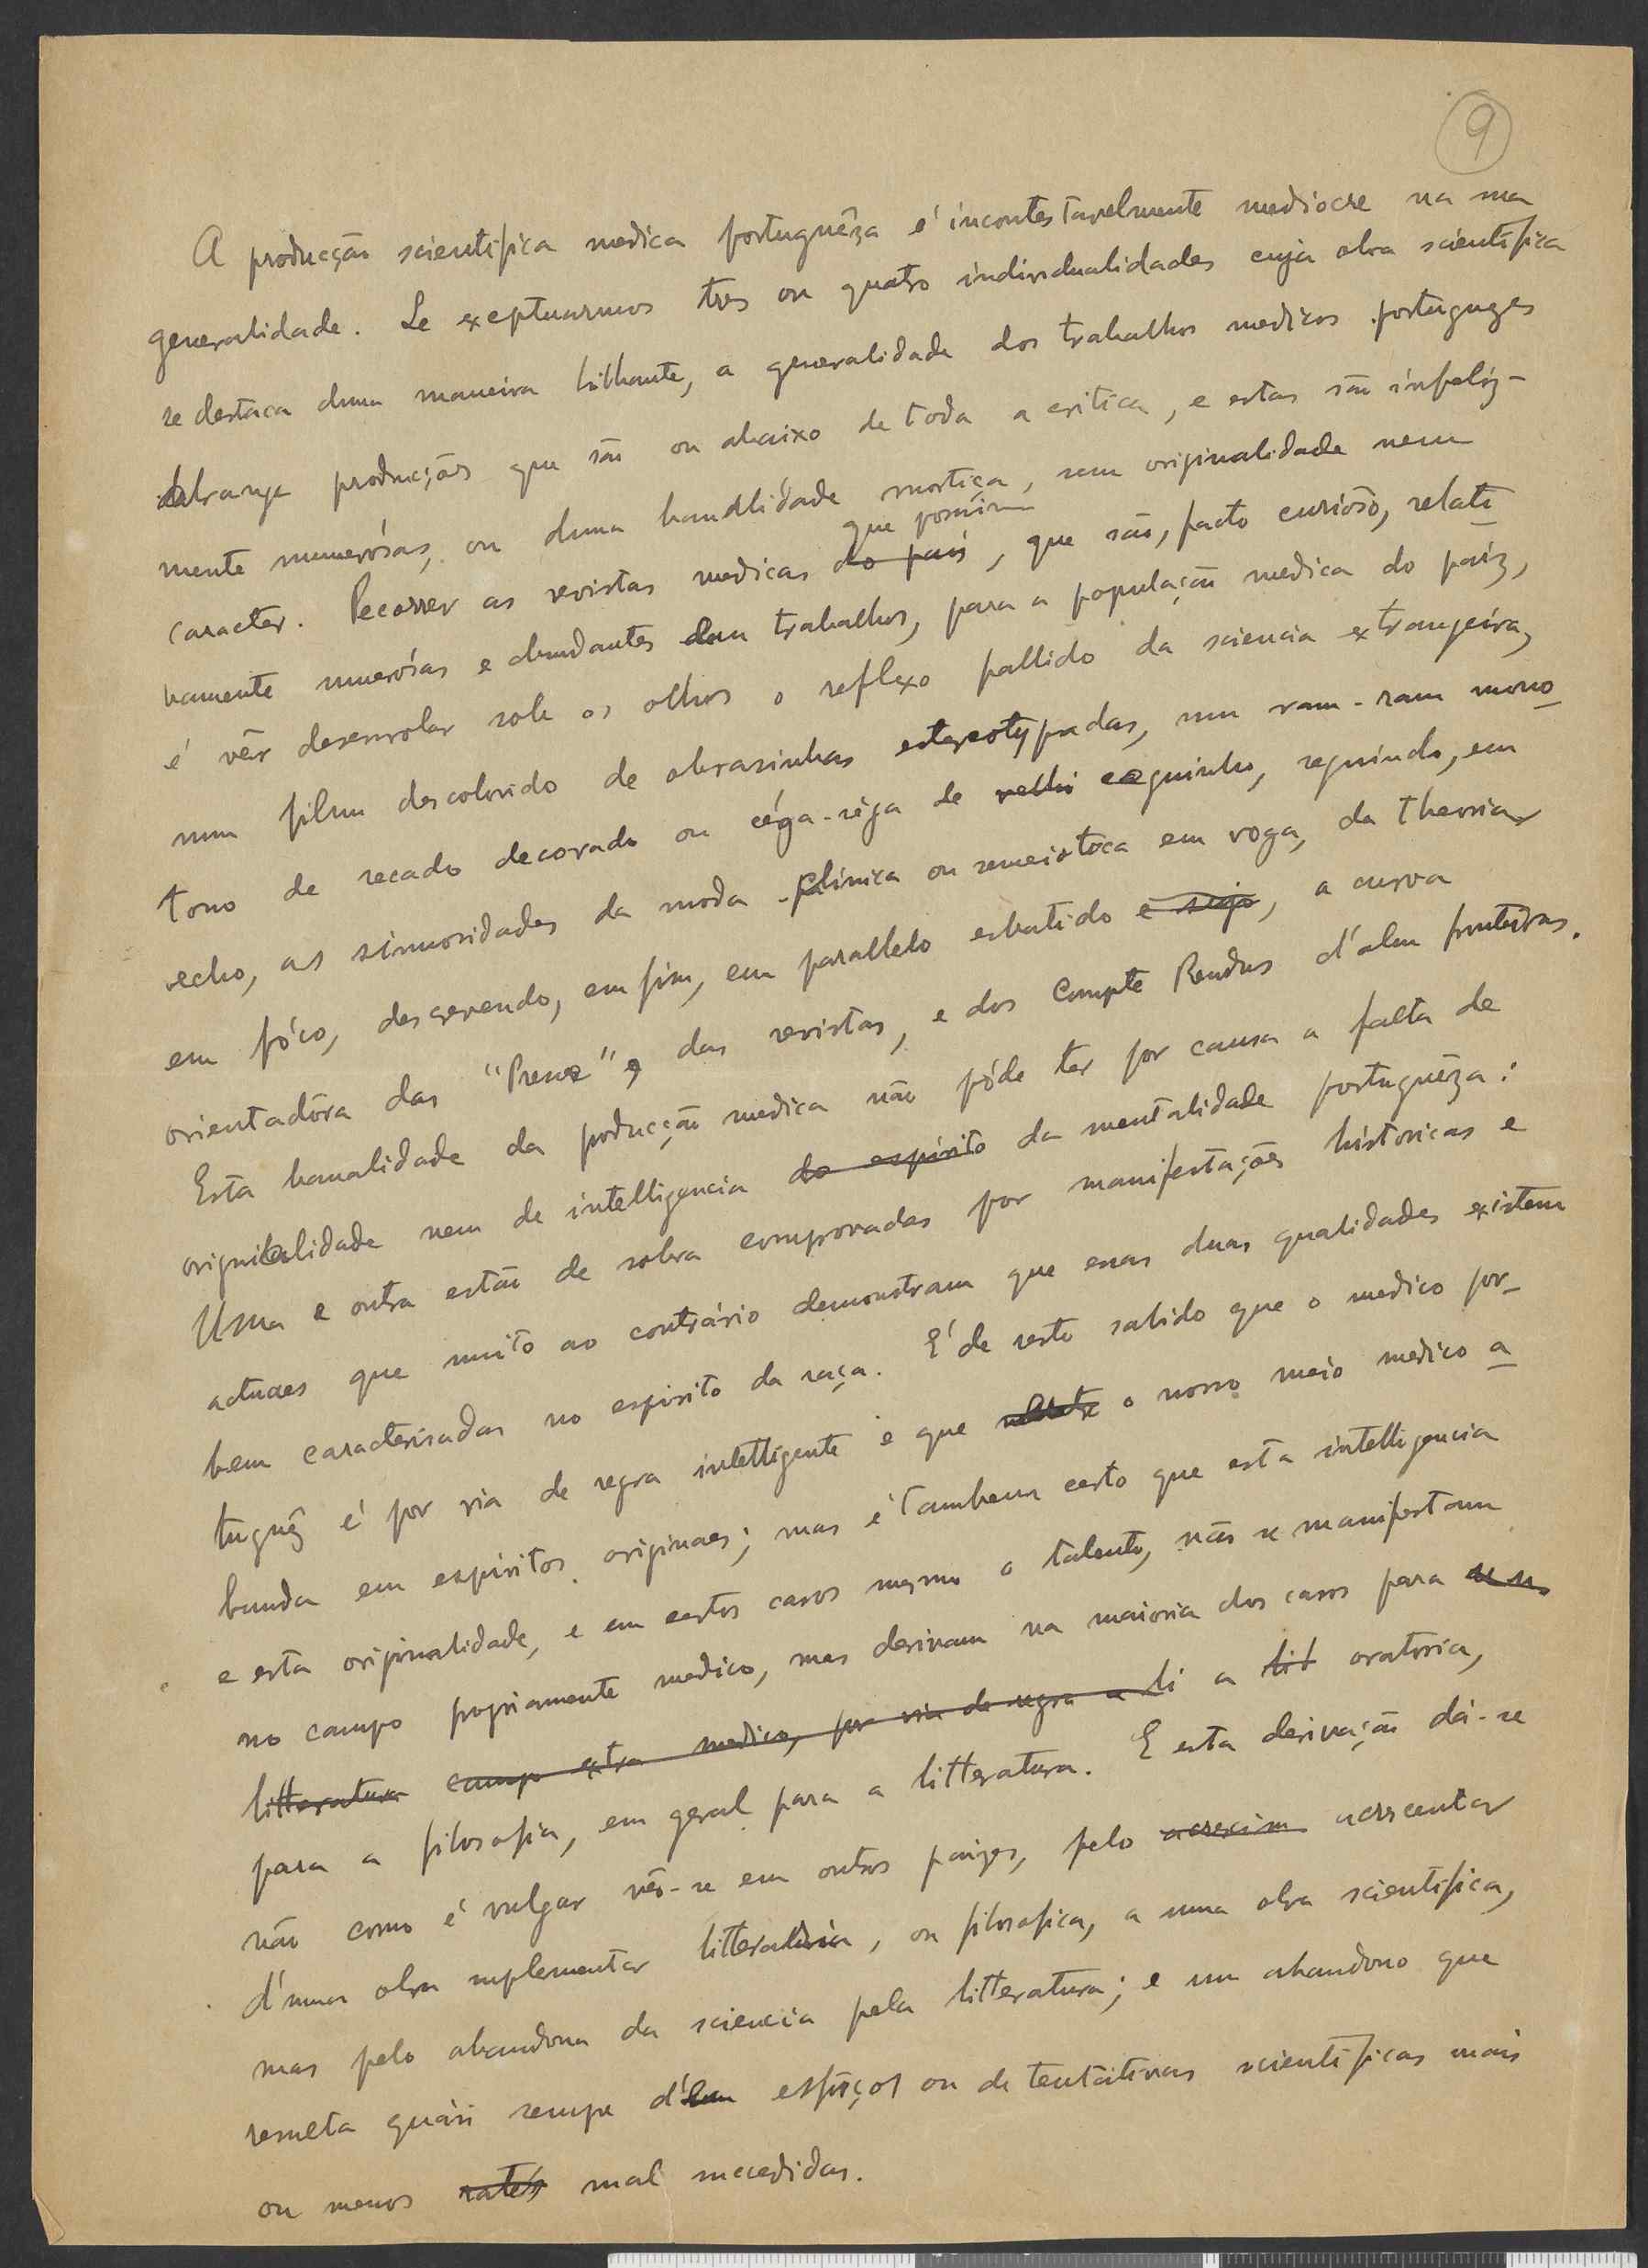 9
A producção scientifica medica portuguêza é incontestavelmente mediocre na ma
generalidade. Se exeptuarmos tres ou quatro individualidades cuja obra scientifica
se destaca duma maneira brilhante, a generalidade dos trabalhos medicos portuguzes
abrange producções que são ou abaixo de toda a critica, e estas são infeliz-
mente numerósas, ou duma banalidade mortiça, sem originalidade nem
caracter. Pecorrer as revistas medicas do país, que são, facto curioso, relati
que possuimos
vamente numerósas e abundantes em trabalhos, para a população medica do paíz,
é vêr desenrolar sob os olhos o reflexo pallido da sciencia extrangeira,
num film descolorido de obrasinhas estereotypadas, num ram-ram mono
tono de recado decorado ou céga-réga de velho ceguinho, seguindo, em
echo, as sinuosidades da moda clinica ou semeiotica em voga, da theoria
em fóco, descrevendo, em fim, em parallelo esbatido e sujo, a curva
orientadôra das "Presse", das revistas, e dos Compte Rendus d'alem fronteiras.
Esta banalidade da producção medica não póde ter por causa a falta de
originalidade nem de intelligencia do espirito da mentalidade portuguêza:
Uma e outra estão de sobra comprovadas por manifestações historicas e
actuaes que muito ao contrário demonstram que essas duas qualidades existem
bem caracterisadas no espirito da raça. É de resto sabido que o medico por-
tuguêz é por via de regra intelligente e que o nosso meio medico a
bunda em espiritos originaes; mas é tambem certo que esta intelligencia
e esta originalidade, e em certos casos mesmo o talento, não se manifestam
no campo propriamente medico, mas derivam na maioria dos casos para
litteratura campo extra medico, por via de regra a li a lit oratoria,
para a filosofia, em geral para a litteratura. E esta derivação dá-se
não como é vulgar vêr-se em outros paizes, pelo acrescim acrescentar
d'uma obra suplementar litteraria, ou filosofica, a uma obra scientifica,
mas pelo abandono da sciencia pela litteratura; e um abandono que
resulta quási sempre d' esforços ou de tentativas scientificas mais
ou menos ratés mal sucedidas.